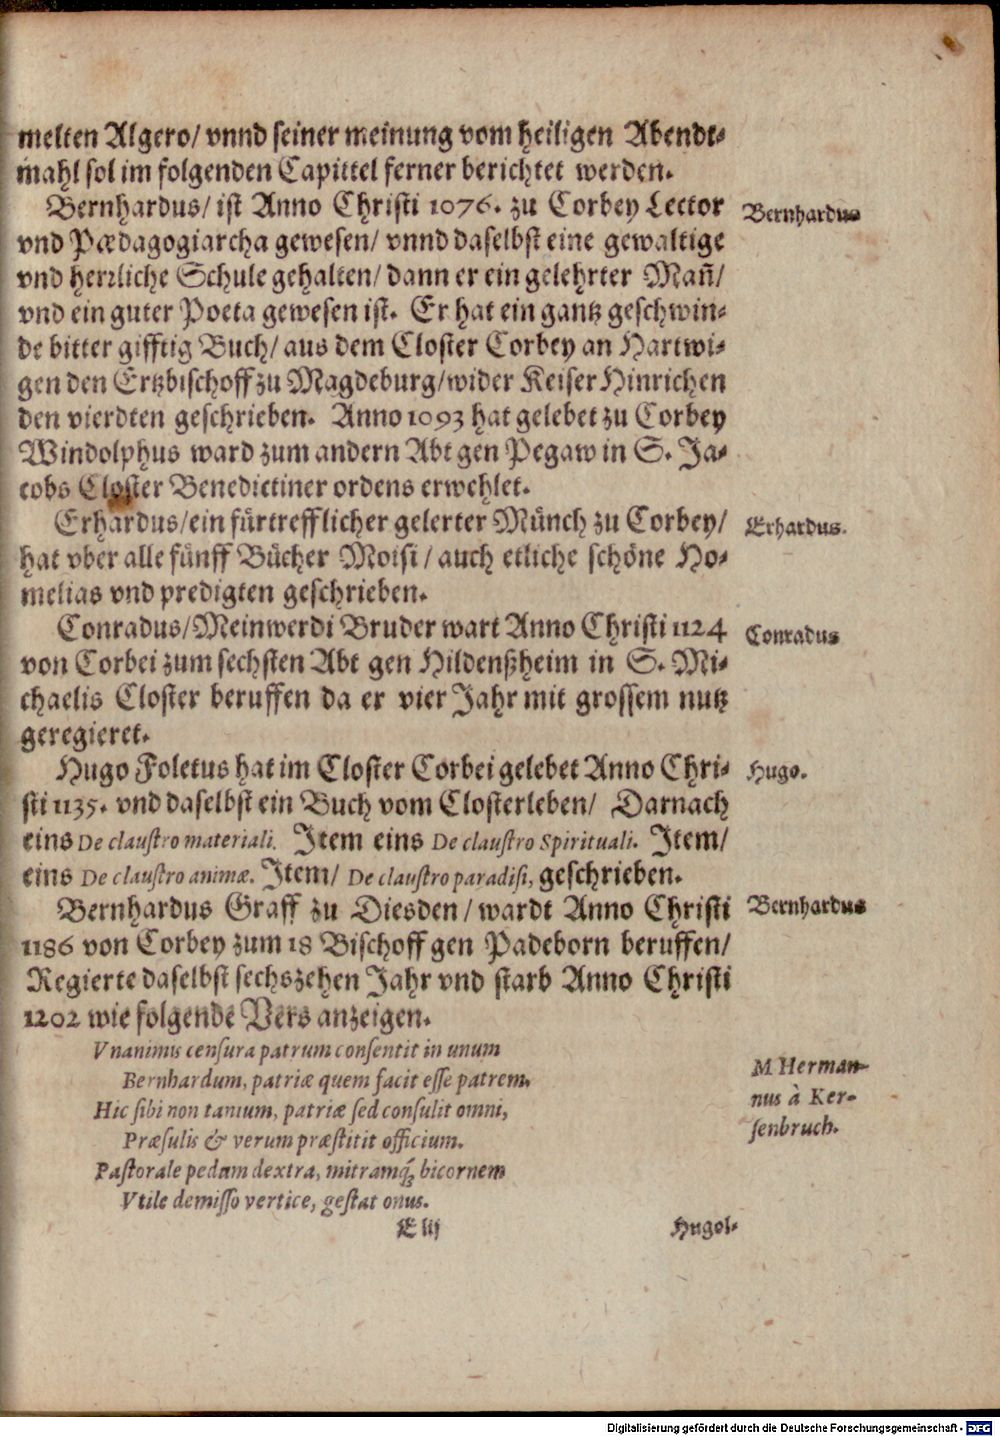 melten Algero/ vnnd seiner meinung vom heiligen Abendt-
mahl sol im folgenden Capittel ferner berichtet werden.
Bernhardus/ ist Anno Christi 1076. zu Corbey Lector
Bernhardus
vnd Pædagogiarcha gewesen/ vnnd daselbst eine gewaltige
vnd herrliche Schule gehalten/ dann er ein gelehrter Mañ/
vnd ein guter Poeta gewesen ist. Er hat ein gantz geschwin-
de bitter gifftig Buch/ aus dem Closter Corbey an Hartwi-
gen den Ertzbischoff zu Magdeburg/ wider Keiser Hinrichen
den vierdten geschrieben. Anno 1093 hat gelebet zu Corbey
Windolphus ward zum andern Abt gen Pegaw in S. Ja-
cobs Closter Benedictiner ordens erwehlet.
Erhardus/ ein fürtrefflicher gelerter Münch zu Corbey/
Erhardus.
hat vber alle fünff Bücher Moisi/ auch etliche schöne Ho-
melias vnd predigten geschrieben.
Conradus/ Meinwerdi Bruder wart Anno Christi 1124
Conradus
von Corbei zum sechsten Abt gen Hildenßheim in S. Mi-
chaelis Closter beruffen da er vier Jahr mit grossem nutz
geregieret.
Hugo Foletus hat im Closter Corbei gelebet Anno Chri-
Hugo.
sti 1135. vnd daselbst ein Buch vom Closterleben/ Darnach
eins De claustro materiali. Item eins De claustro Spirituali. Item/
eins De claustro animæ. Item/ De claustro paradisi, geschrieben.
Bernhardus Graff zu Diesden/ wardt Anno Christi
Bernhardus
1186 von Corbey zum 18 Bischoff gen Padeborn beruffen/
Regierte daselbst sechszehen Jahr vnd starb Anno Christi
1202 wie folgende Vers anzeigen.
Vnanimis censura patrum consentit in unum
Bernhardum, patriæ quem facit esse patrem.
M Herman-
nus à Ker-
senbruch.
Hic sibi non tantum, patriæ sed consulit omni,
Præsulis & verum præstitit officium.
Pastorale pedum dextra, mitramq́; bicornem
Vtile demisso vertice, gestat onus.
E iij
Hugol-
Digitalisierung gefördert durch die Deutsche Forschungsgemeinschaft - DFG